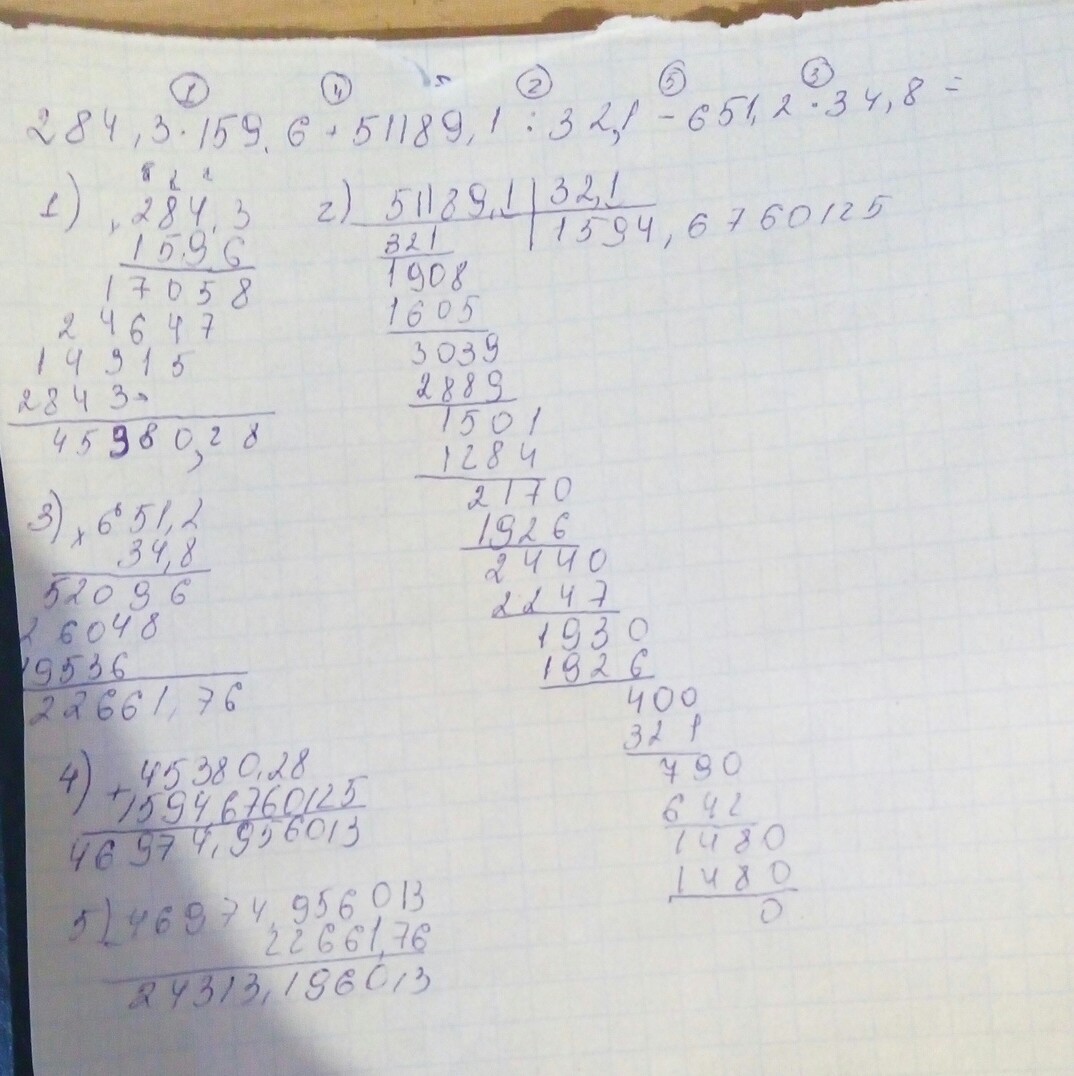 ① ④ ② ⑤ ③
284,3·159,6+51189,1:32,1-651,2·34,8=
1)
284,3
159,6
17058
24647
14915
2843
45980,28
2) 51189,1 | 32,1
1594,6760125
321
1908
1605
3039
2889
1501
1284
2170
1926
2440
2247
1930
1926
400
321
790
642
1480
1480
0
3) x 651,2
34,8
52096
26048
19536
22661,76
4) + 45380,28
1594,6760125
46974,956013
5) - 46974,956013
22661,76
24313,196013